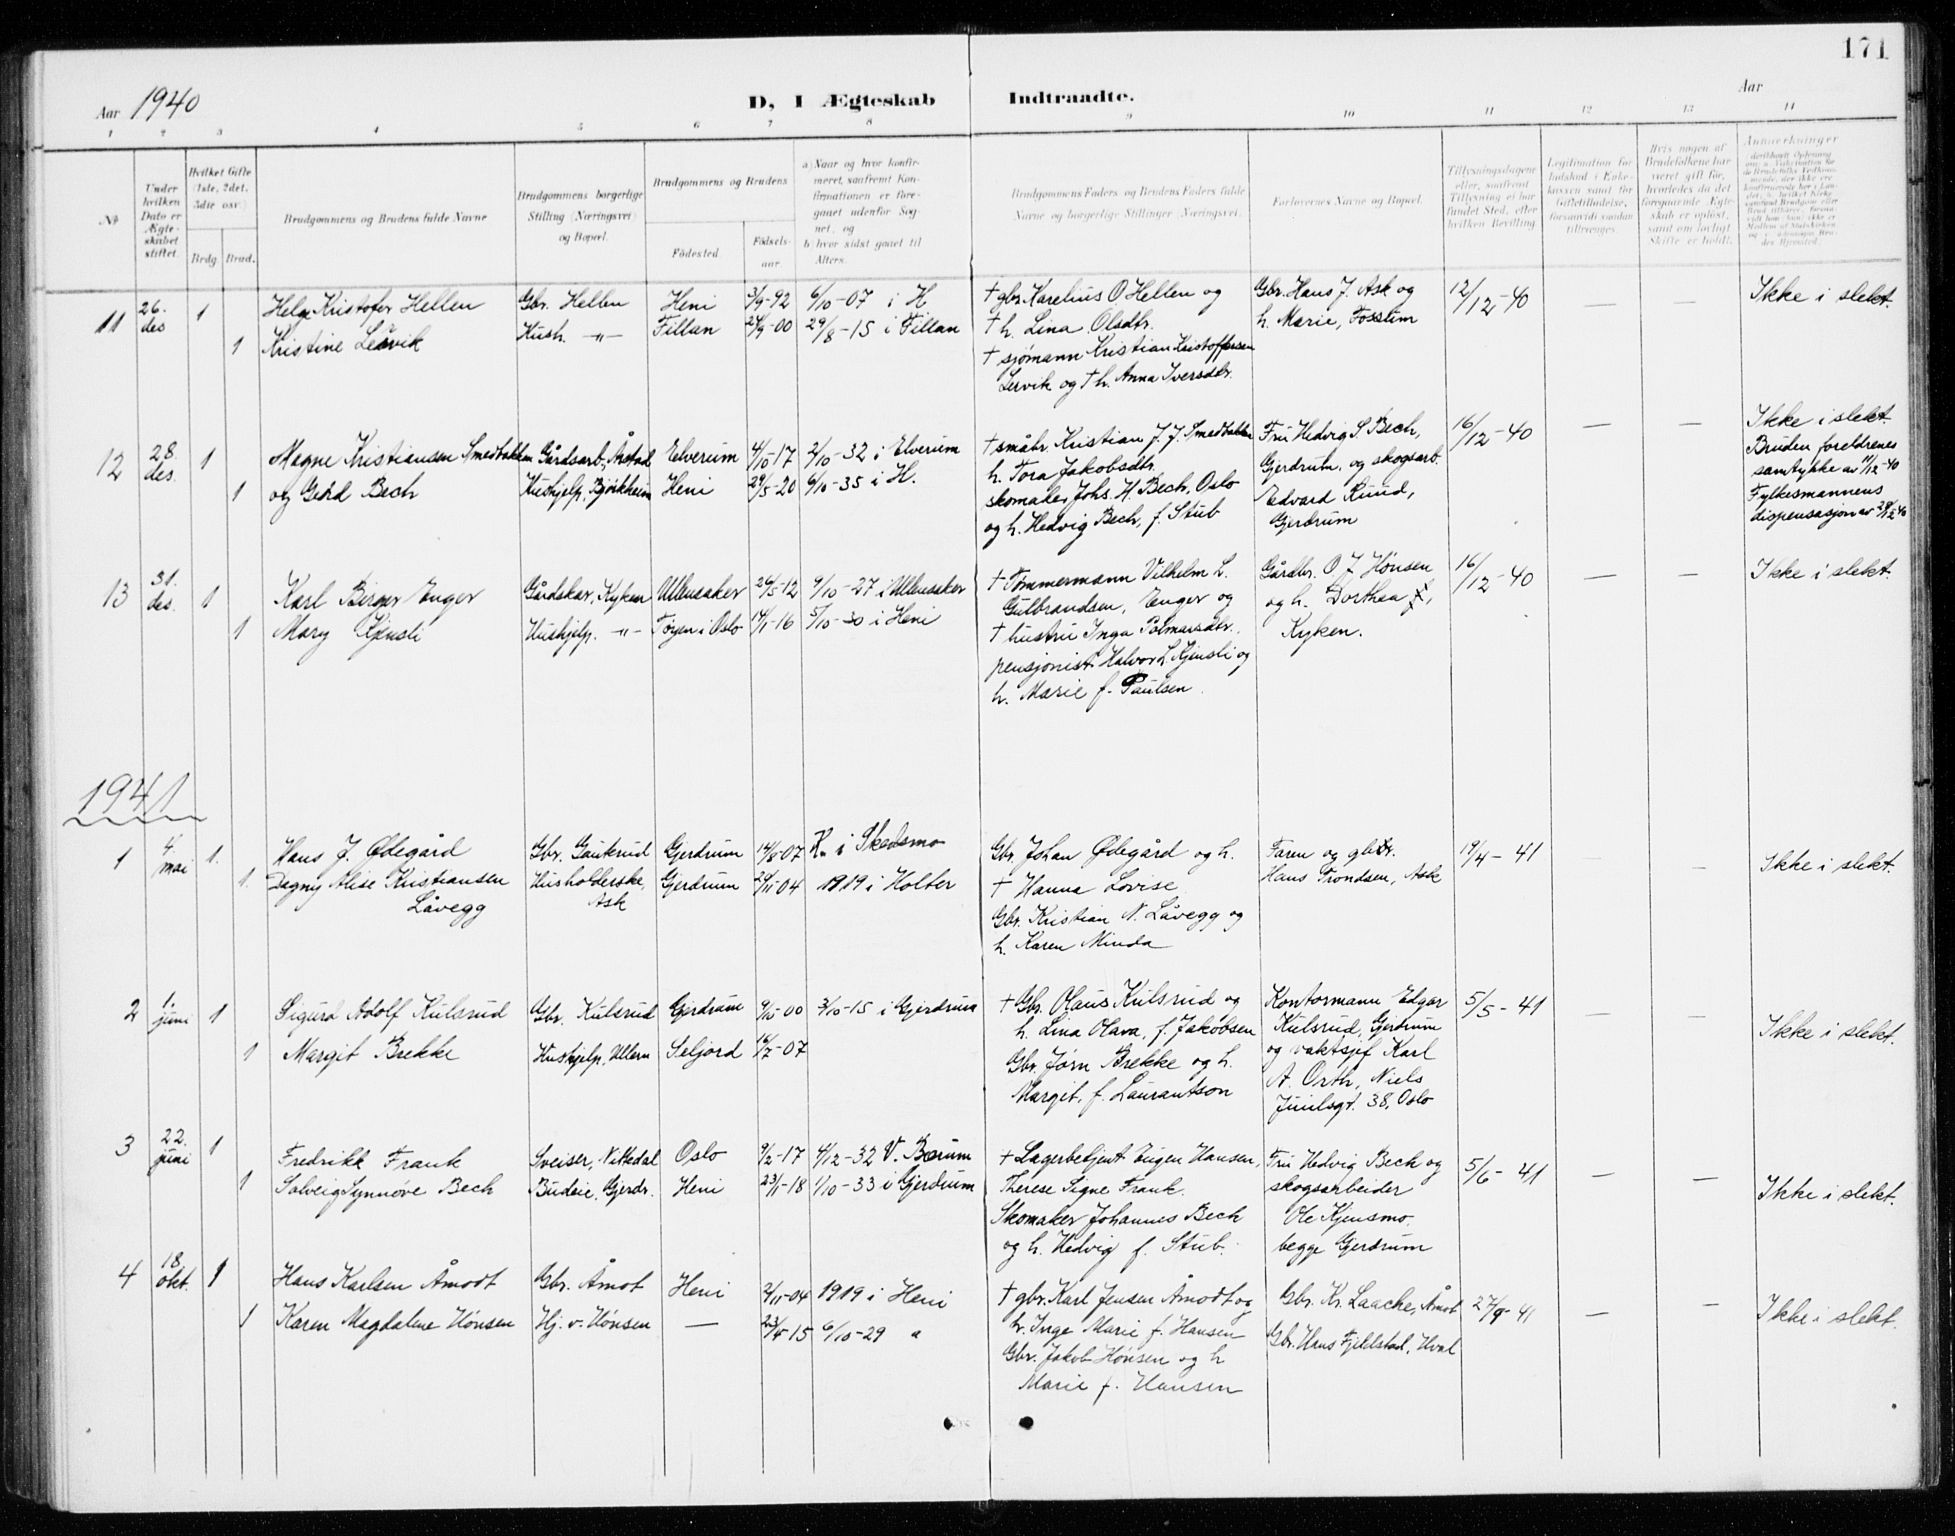 171
Aar 1940
D, I Ægteskab Indtraadte.
Aar
1 2 3 4 5 6 7 8 9 10 11 12 13 14
No.
Under hvilken Dato er Ægteskabet stiftet.
Hvilket Gifte (1ste, 2det, 3die osv.)
Brdg. Brud.
Brudgommens og Brudens fulde Navne
Brudgommens borgerlige Stilling (Næringsvei) og Bopæl.
Brudgommens og Brudens
Fødested.
Fødselsaar.
a) Naar og hvor konfirmeret, saafremt Konfirmationen er foregaaet udenfor Sognet, og
b) hvor sidst gaaet til Alters.
Brudgommens Faders og Brudens Faders fulde Navne og borgerlige Stillinger (Næringsvei).
Forlovernes Navne og Bopæl.
Tillysningsdagene eller, saafremt Tillysning ei har fundet Sted, efter hvilken Bevilling
Legitimation for Indskud i Enkekassen samt for Giftetilladelse, forsaavidt saadan tiltrænges.
Hvis nogen af Brudefolkene har været gift før, hvorledes da det foregaaende Ægteskab er opløst, samt om lovligt Skifte er holdt.
Anmerkninger
11 26. des 1 Helge Kristofer Hellen Gbr. Hellen Heni 3/9-92 6/10-07 i H
1 Kristine Lervik Hush. -"- Fillan 27/9-00 29/8-15 i Fillan
† gbr. Karelius O. Hellen og
† h. Lina Olsdtr.
† sjømann Kristian Kristoffersen
Lervik og † h. Anna Iversdtr.
Gbr. Hans J. Ask og
h. Marie, Fossum
12/12-40 — — Ikke i slekt.
12 28. des. 1 Magne Kristiansen Smedbakken Gårdsarb., Årstad Elverum 4/10-17 2/10-32 i Elverum
1 og Gerd Bech Hushjelp, Bjørkheim Heni 29/5-20 6/10-35 i H.
† småbr. Kristian J. J. Smedbakken
h. Tora Jakobsdtr.
skomaker Johs. H. Bech, Oslo
og h. Hedvig Bech, f. Stub
Fru Hedvig S Bech,
Gjerdrum, og skogsarb.
Edvard Ruud,
Gjerdrum
16/12-40 — —
Ikke i slekt.
Bruden foreldrenes
samtykke av 11/12-40
Fylkesmannens
dispensasjon av 28/12-40
13 31. des. 1 Karl Birger Enger Gårdskar, Kyken Ullensaker 26/5-12 9/10-27 i Ullensaker
1 Mary Kjensli Hushjelp. -"- Tøyen i Oslo 14/1-16 5/10-30 i Heni
† Tømmermann Vilhelm L.
Gulbrandsen, Enger og
† hustru Inga Polmarsdtr.
pensjonist Halvor L Kjensli og
h. Marie f. Paulsen.
Gårdbr. O J Hønsen
og h. Dorthea,
Kyken.
16/12-40 — — Ikke i slekt.
1941
1 4. mai 1. Hans J. Ødegård Gbr. Gaukrud Gjerdrum 14/8-07 K. i Skedsmo
1. Dagny Alise Kristiansen Husholderske, Gjerdrum 29/11-04 1919 i Holter
Låvegg Ask
Gbr. Johan Ødegård og h.
† Hanna Lovise
Gbr. Kristian N. Låvegg og
h. Karen Minda
Faren og gbr.
Hans Trondsen, Ask
19/4-41 — — Ikke i slekt.
2 1. juni 1 Sigurd Adolf Kulsrud Gbr. Kulsrud Gjerdrum 9/10-00 3/10-15 i Gjerdrum
1 Margit Brekke Hushjelp, Ullern Seljord 16/7-07
† Gbr. Olaus Kulsrud og
h. Lina Olava, f. Jakobsen
Gbr. Jørn Brekke og h.
Margit, f. Laurantson
Kontormann Edgar
Kulsrud, Gjerdrum
og vaktsjef Karl
A. Orth, Niels
Juulsgt. 38, Oslo
5/5-41 — — Ikke i slekt.
3 22. juni 1 Fredrikk Frank Sveiser, Nittedal Oslo 9/2-17 4/12-32 V. Bærum
1 Solveig Synnøve Bech Budeie, Gjerdr. Heni 23/1-18 1/10-33 i Gjerdrum
† Lagerbetjent Eugen Hansen,
Therese Signe Frank.
Skomaker Johannes Bech
og h. Hedvig f. Stub.
Fru Hedvig Bech og
skogsarbeider
Ole Kjensmo.
begge Gjerdrum
5/6-41 — — Ikke i slekt.
4 18. okt. 1 Hans Karlsen Åmodt Gbr. Åmot Heni 2/11-04 1919 i Heni
1 Karen Magdalene Hønsen Hj. v. Hønsen — 23/5-15 6/10-29 "
† gbr. Karl Jensen Åmodt og
h. Inge Marie f. Hansen
Gbr. Jakob Hønsen og h
Marie f. Hansen
Gbr. Kr. Laache, Åmot
Gbr. Hans Fjeldstad, Hval
27/9-41 — — Ikke i slekt.